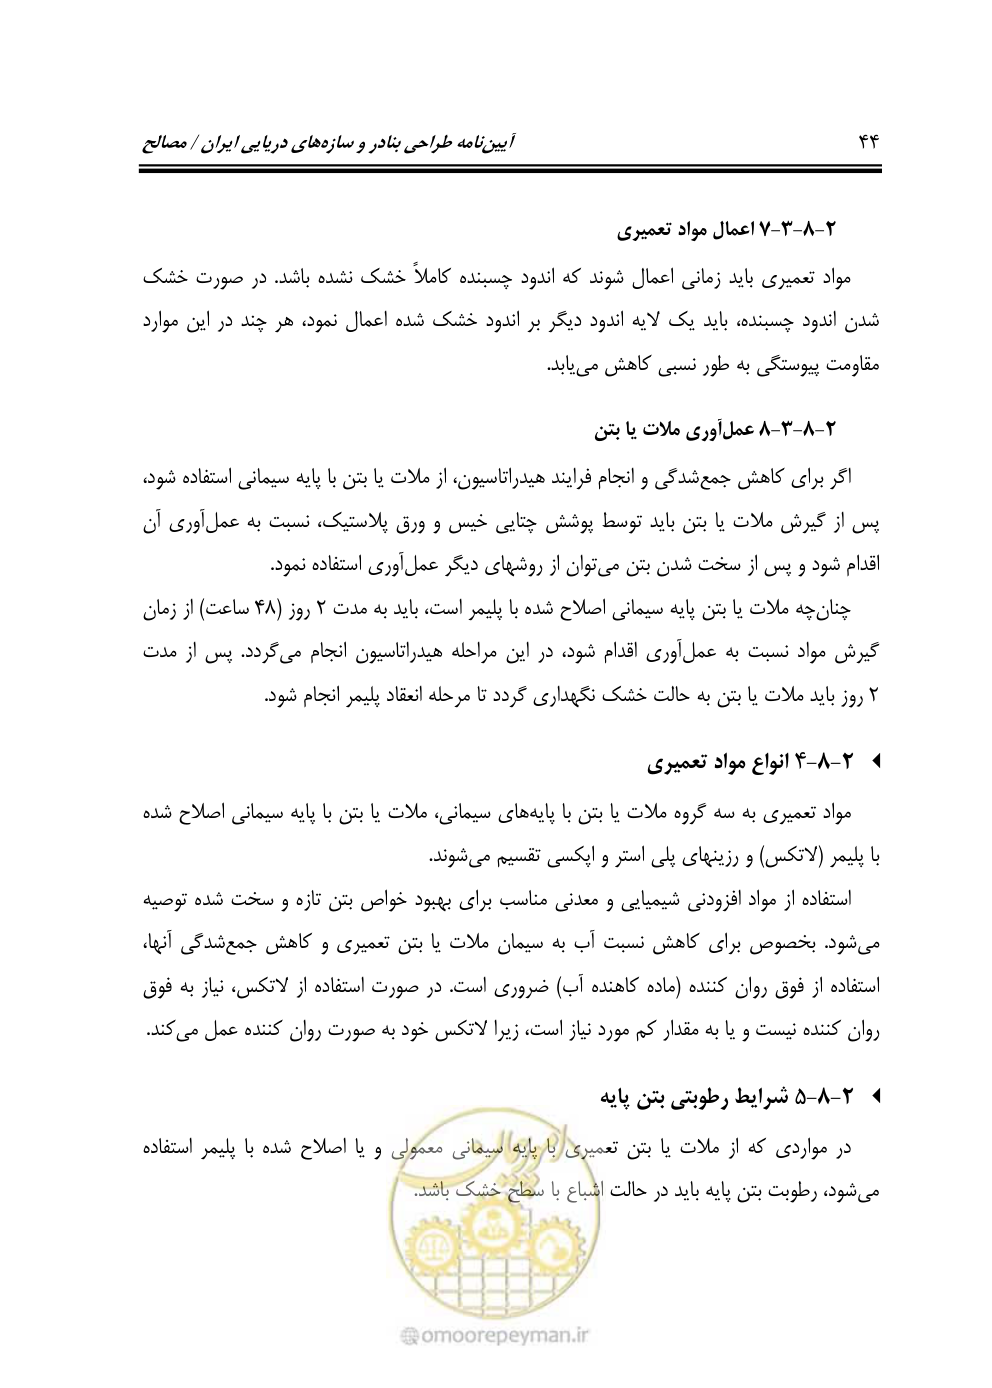 ۴۴
آیین‌نامه طراحی بنادر و سازه‌های دریایی ایران / مصالح
۲-۸-۳-۷ اعمال مواد تعمیری
مواد تعمیری باید زمانی اعمال شوند که اندود چسبنده کاملاً خشک نشده باشد. در صورت خشک
شدن اندود چسبنده، باید یک لایه اندود دیگر بر اندود خشک شده اعمال نمود، هر چند در این موارد
مقاومت پیوستگی به طور نسبی کاهش می‌یابد.
۲-۸-۳-۸ عمل‌آوری ملات یا بتن
اگر برای کاهش جمع‌شدگی و انجام فرایند هیدراتاسیون، از ملات یا بتن با پایه سیمانی استفاده شود،
پس از گیرش ملات یا بتن باید توسط پوشش چتایی خیس و ورق پلاستیک، نسبت به عمل‌آوری آن
اقدام شود و پس از سخت شدن بتن می‌توان از روشهای دیگر عمل‌آوری استفاده نمود.
چنان‌چه ملات یا بتن پایه سیمانی اصلاح شده با پلیمر است، باید به مدت ۲ روز (۴۸ ساعت) از زمان
گیرش مواد نسبت به عمل‌آوری اقدام شود، در این مراحله هیدراتاسیون انجام می‌گردد. پس از مدت
۲ روز باید ملات یا بتن به حالت خشک نگهداری گردد تا مرحله انعقاد پلیمر انجام شود.
۲-۸-۴ انواع مواد تعمیری
مواد تعمیری به سه گروه ملات یا بتن با پایه‌های سیمانی، ملات یا بتن با پایه سیمانی اصلاح شده
با پلیمر (لاتکس) و رزینهای پلی استر و اپکسی تقسیم می‌شوند.
استفاده از مواد افزودنی شیمیایی و معدنی مناسب برای بهبود خواص بتن تازه و سخت شده توصیه
می‌شود. بخصوص برای کاهش نسبت آب به سیمان ملات یا بتن تعمیری و کاهش جمع‌شدگی آنها،
استفاده از فوق روان کننده (ماده کاهنده آب) ضروری است. در صورت استفاده از لاتکس، نیاز به فوق
روان کننده نیست و یا به مقدار کم مورد نیاز است، زیرا لاتکس خود به صورت روان کننده عمل می‌کند.
۲-۸-۵ شرایط رطوبتی بتن پایه
در مواردی که از ملات یا بتن تعمیری با پایه سیمانی معمولی و یا اصلاح شده با پلیمر استفاده
می‌شود، رطوبت بتن پایه باید در حالت اشباع با سطح خشک باشد.
امور پیمان
@omoorepeyman.ir